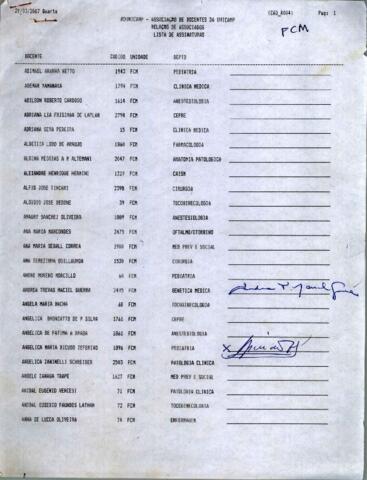 21/03/2007 Quarta ADUNICAMP - ASSOCIAÇÃO DE DOCENTES DA UNICAMP (CAD_R004) Pag: 1
RELAÇÃO DE ASSOCIADOS
LISTA DE ASSINATURAS
FCM
DOCENTE CÓDIGO UNIDADE DEPTO
FCM PEDIATRIA
ADEMAR YAMANAKA FCM CLINICA MEDICA
ADILSON ROBERTO CARDOSO 1614 FCM ANESTESIOLOGIA
ADRIANA LIA FRISZMAN DE LAPLAN 2794 FCM CEPRE
ADRIANA SEVA PEREIRA 15 FCM CLINICA MEDICA
ALBETIZA LOBO DE ARAUJO 1860 FCM FARMACOLOGIA
ALBINA MESSIAS A M ALTEMANI 2047 FCM ANATOMIA PATOLOGICA
ALEXANDRE HENRIQUE HERMINI FCM CAISM
FCM CIRURGIA
FCM TOCOGINECOLOGIA
AMAURY SANCHEZ OLIVEIRA 1009 FCM ANESTESIOLOGIA
ANA MARIA MARCONDES 2475 FCM OFTALMO/OTORRINO
ANA MARIA SEGALL CORREA FCM MED PREV E SOCIAL
ANA TEREZINHA GUILLAUMON FCM CIRURGIA
ANDRE MORENO MORCILLO FCM PEDIATRIA
ANDREA TREVAS MACIEL GUERRA 2495 FCM GENETICA MEDICA
ANGELA MARIA BACHA 68 FCM TOCOGINECOLOGIA
ANGELICA BRONZATTO DE P SILVA FCM CEPRE
ANGELICA DE FATIMA A BRAGA FCM ANESTESIOLOGIA
ANGELICA MARIA BICUDO ZEFERINO 1896 FCM PEDIATRIA X
ANGELICA ZANINELLI SCHREIBER 2503 FCM PATOLOGIA CLINICA
ANGELO ZANAGA TRAPE FCM MED PREV E SOCIAL
ANIBAL EUGENIO VERCESI 71 FCM PATOLOGIA CLINICA
ANIBAL EUSEBIO FAUNDES LATHAM 72 FCM TOCOGINECOLOGIA
ANNA DE LUCCA OLIVEIRA 74 FCM ENFERMAGEM